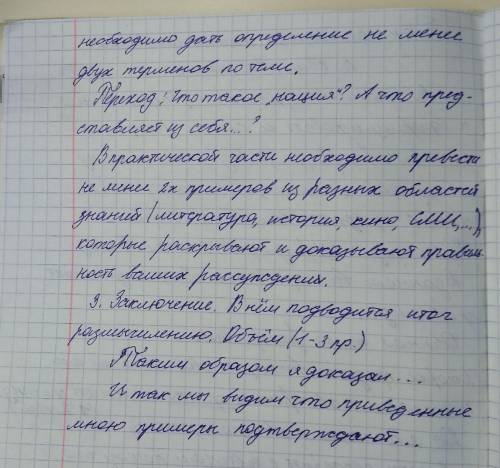 необходимо дать определение не менее
двух терменов по теме.
Переход: Что такое „нация"? А что пред-
ставляет из себя...?
В практической части необходимо превести
не менее 2х примеров из разных областей
знаний (литература, история, кино, СМИ,...),
которые раскрывают и доказывают правиль-
ность ваших рассуждений.
3. Заключение. В нём подводится итог
размышлению. Объём (1-3 пр.)
Таким образом я доказал...
И так мы видим что приведенные
мною примеры подтверждают...